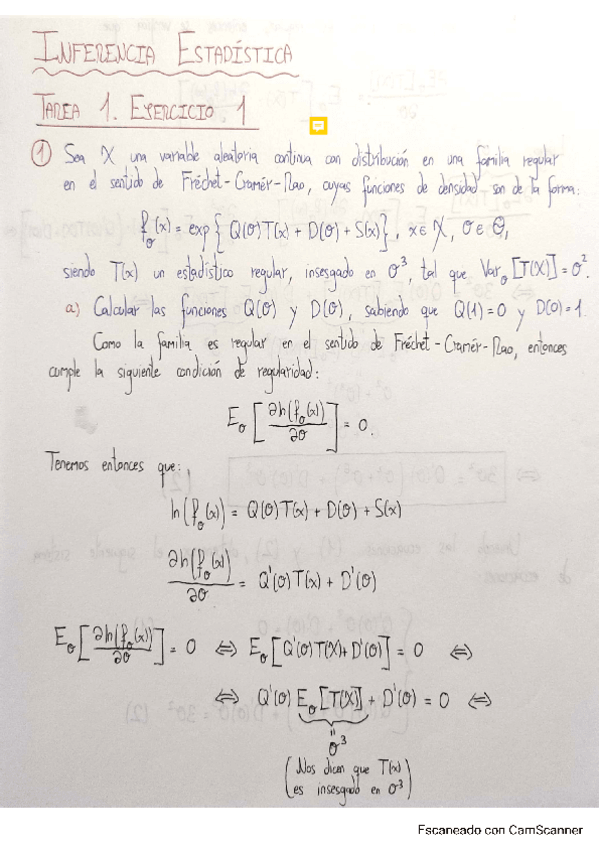 INFERENCIA ESTADÍSTICA
TAREA 1. EJERCICIO 1
① Sea X una variable aleatoria continua con distribución en una familia regular
en el sentido de Fréchet-Cramér-Rao, cuyas funciones de densidad son de la forma:
f_θ(x) = exp{Q(θ)T(x) + D(θ) + S(x)}, x ∈ X, θ ∈ Θ,
siendo T(X) un estadístico regular, insesgado en θ³, tal que Var_θ[T(X)] = θ².
a) Calcular las funciones Q(θ) y D(θ), sabiendo que Q(1)=0 y D(0)=1.
Como la familia es regular en el sentido de Fréchet-Cramér-Rao, entonces
cumple la siguiente condición de regularidad:
E_θ[∂ln(f_θ(x))/∂θ] = 0.
Tenemos entonces que:
ln(f_θ(x)) = Q(θ)T(x) + D(θ) + S(x)
∂ln(f_θ(x))/∂θ = Q'(θ)T(x) + D'(θ)
E_θ[∂ln(f_θ(x))/∂θ] = 0 ⇔ E_θ[Q'(θ)T(X)+D'(θ)] = 0 ⇔
⇔ Q'(θ) E_θ[T(X)] + D'(θ) = 0 ⇔
=
θ³
(Nos dicen que T(x)
es insesgado en θ³)
Escaneado con CamScanner